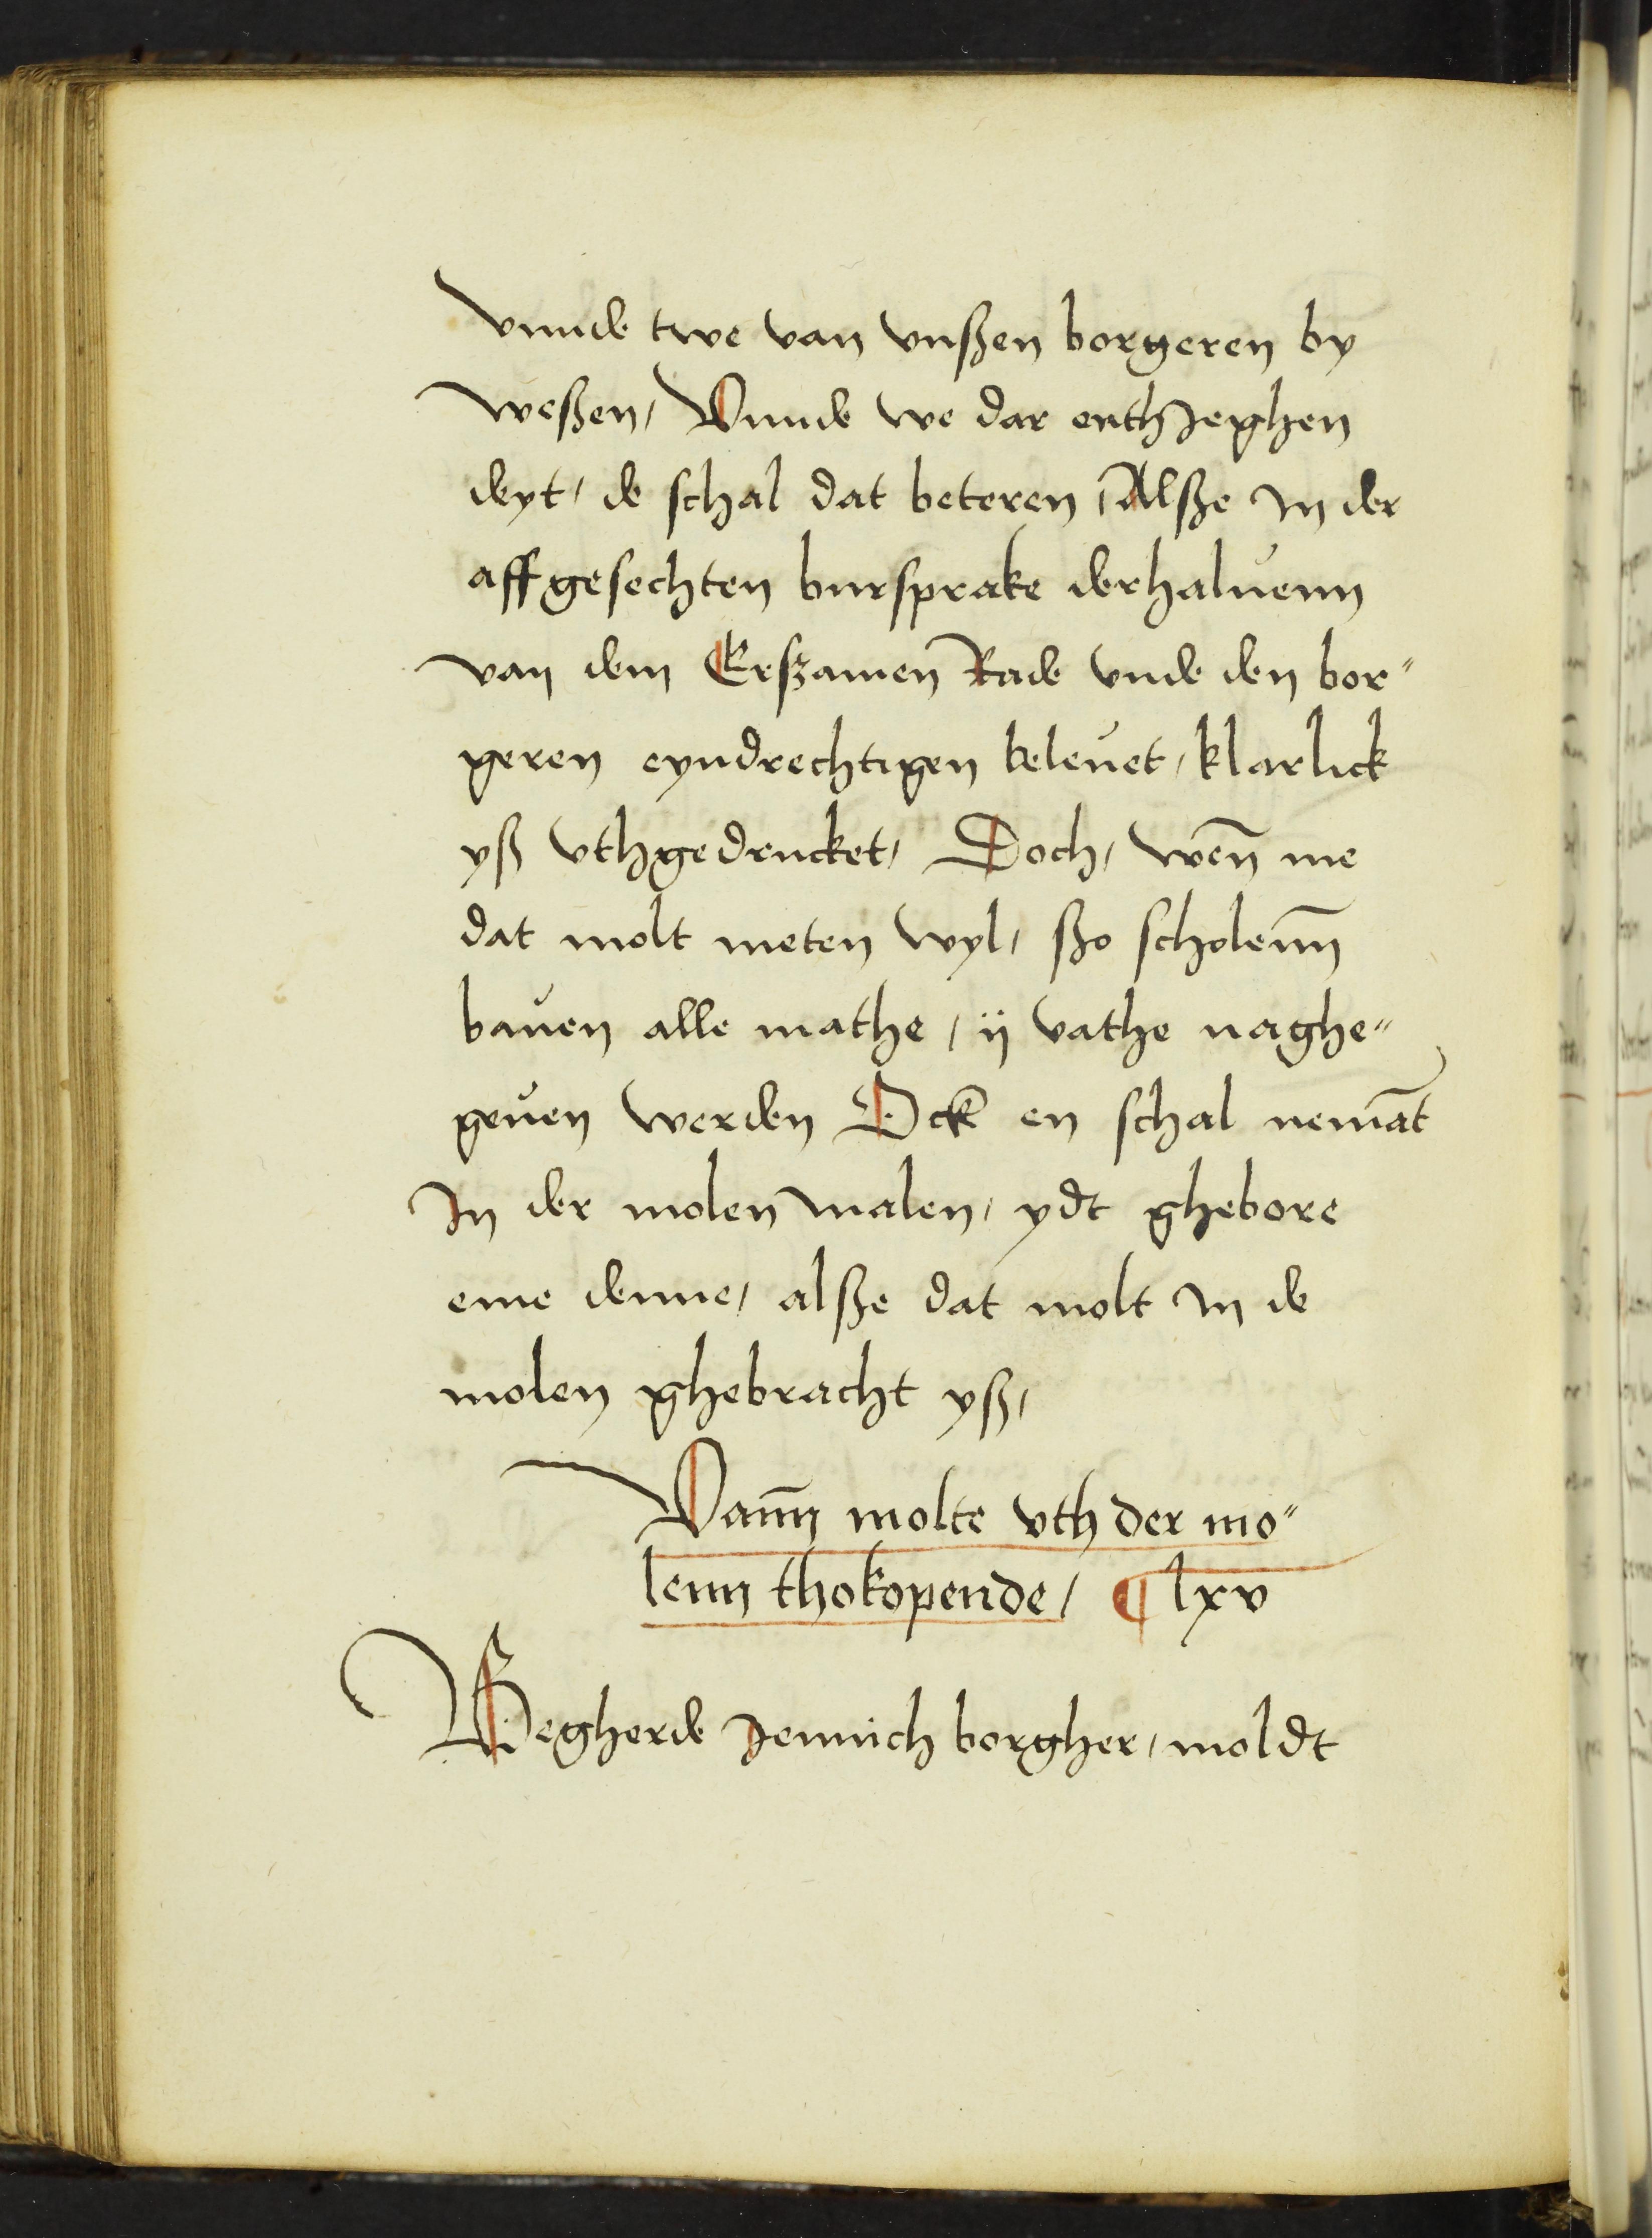 vnnde twe van vnßen borgeren by
weßen, Vnnde we dar enthJeghen
deyt, de schal dat beteren, Alße Jn der
affgesechten bursprake derhaluenn
van dem Erßamen Rade vnde den bor"
geren eyndrechtigen beleuet, klarlick
yß vthgedrucket, Doch, wen̄ me
dat molt meten wyl, ßo scholenn̄
bauen alle mathe, ij vathe naghe"
geuen werden Ock en schal nemāt
Jn der molen malen, ydt ghebore
eme denne, alße dat molt Jn de
molen ghebracht yß,
Vann̄ molte vth der mo"
lenn thokopende, ¶ lxv
Begherde Jennich borgher, moldt